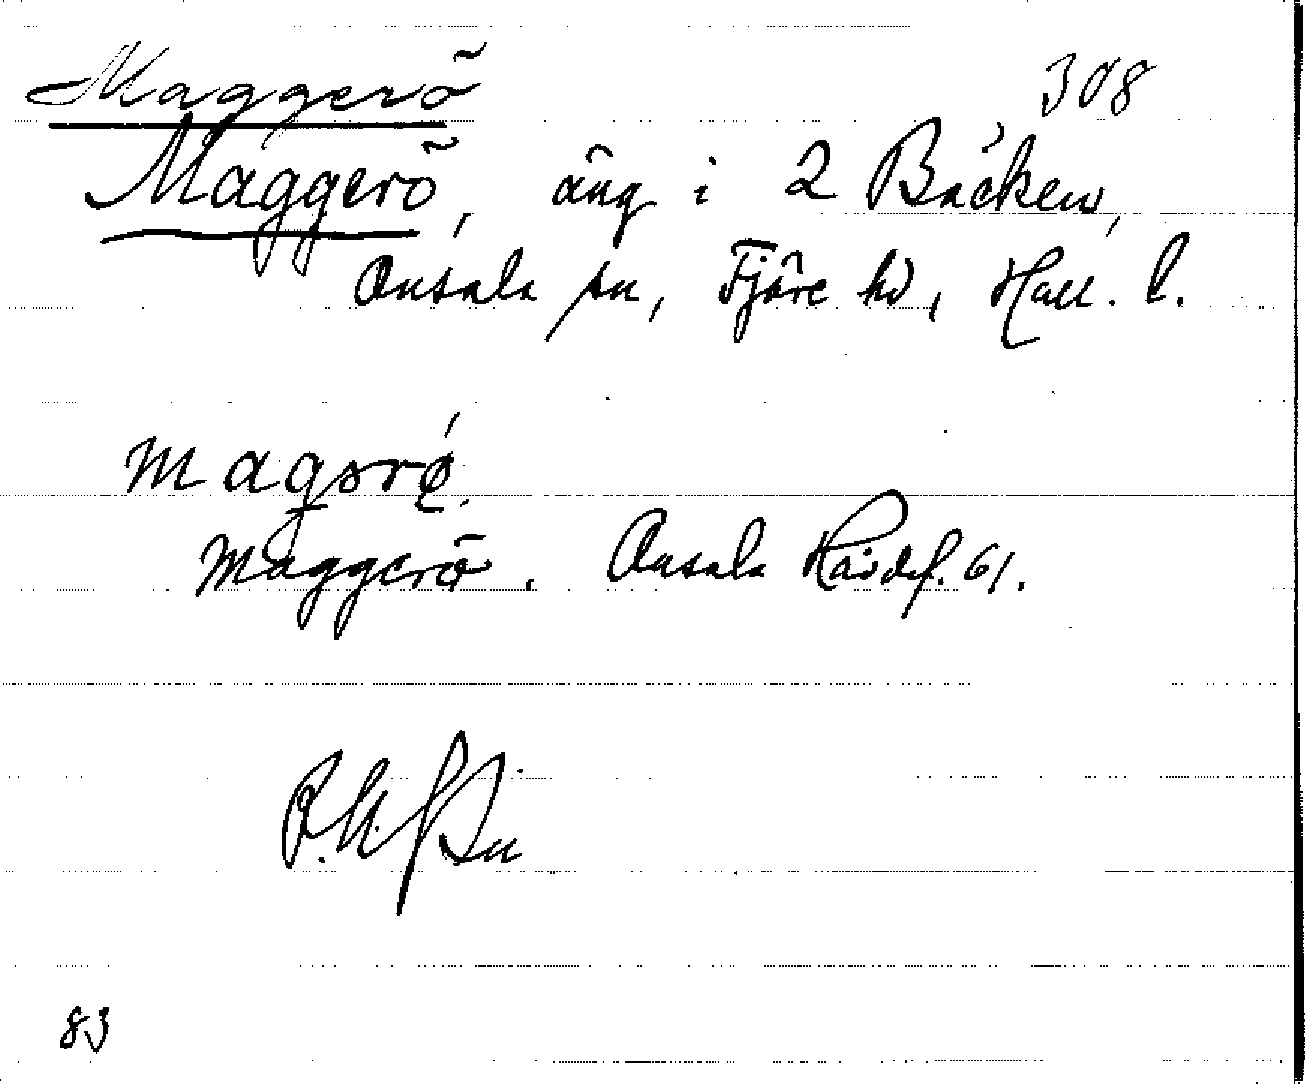 Maggerö 308
Maggerö, äng i 2 Bäcken,
Onsala sn, Fjäre hd, Hall. l.
magərö́
Maggerö. Onsala Hd 61.
83